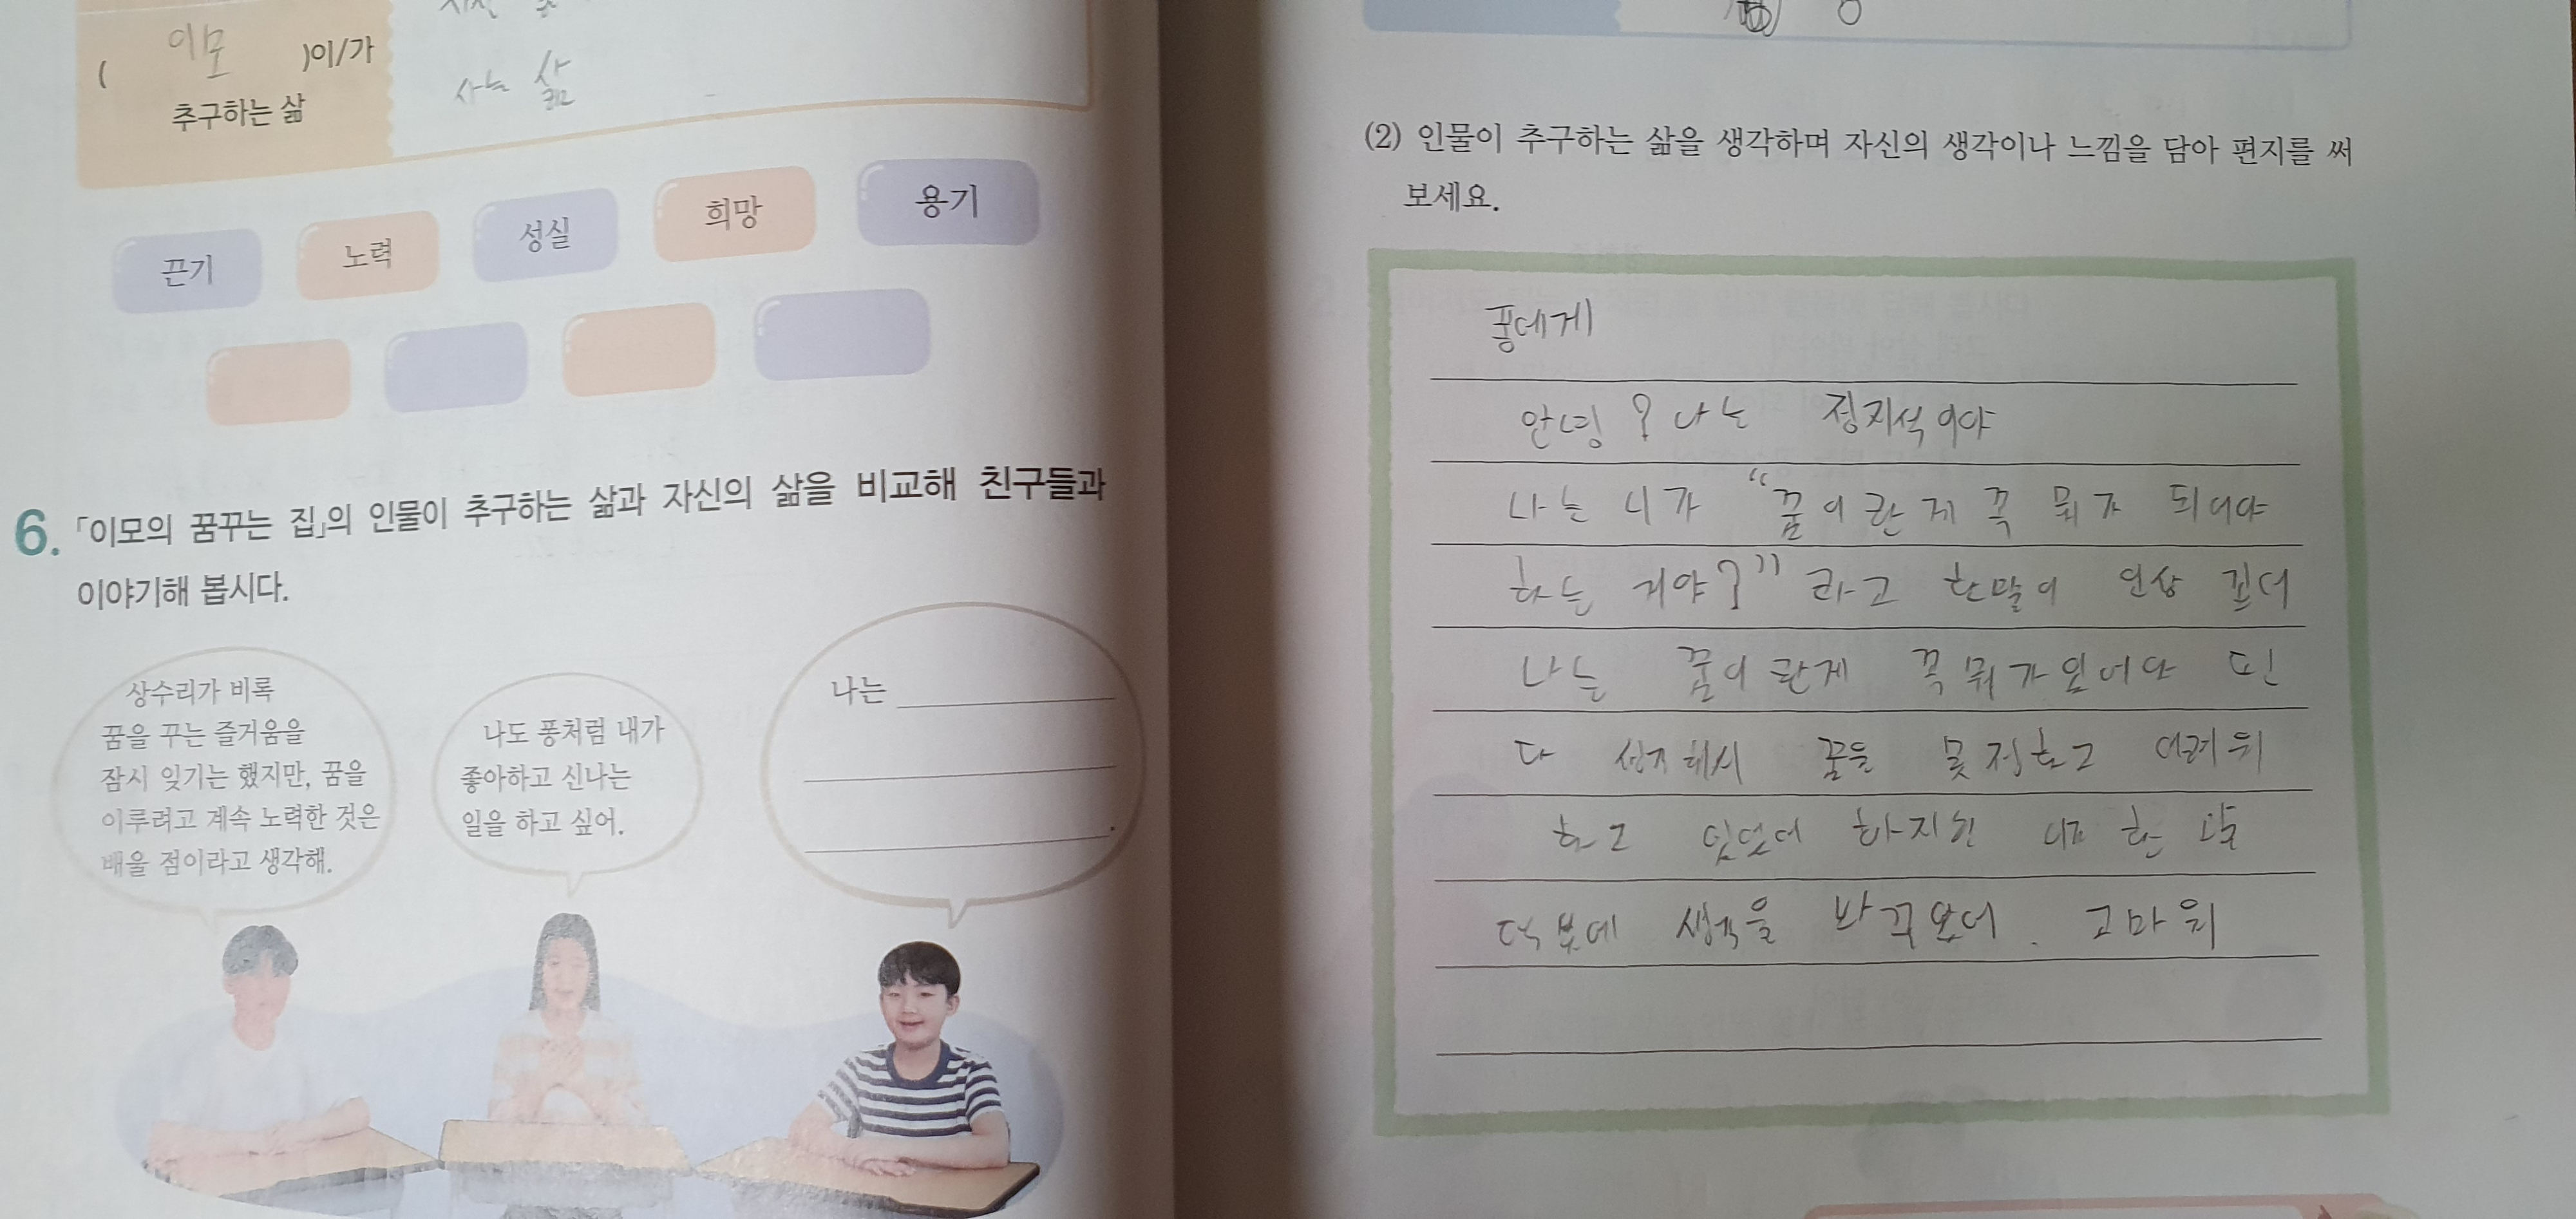 이모
( )이/가
추구하는 삶
사는 삶
끈기 노력 성실 희망 용기
6. 「이모의 꿈꾸는 집」의 인물이 추구하는 삶과 자신의 삶을 비교해 친구들과
이야기해 봅시다.
상수리가 비록
꿈을 꾸는 즐거움을
잠시 잊기는 했지만, 꿈을
이루려고 계속 노력한 것은
배울 점이라고 생각해.
나도 퐁처럼 내가
좋아하고 신나는
일을 하고 싶어.
나는
(2) 인물이 추구하는 삶을 생각하며 자신의 생각이나 느낌을 담아 편지를 써
보세요.
퐁에게
안녕? 나는 정지석이야
나는 니가 "꿈이란게 꼭 뭐가 되어야
하는 거야?"라고 한말이 인상 깊어
나는 꿈이란게 꼭 뭐가
다 생각해서 꿈을 못정하고 어려워
하고 있었어 하지만 니가 한
덕분에 생각을 바꾸었어. 고마워